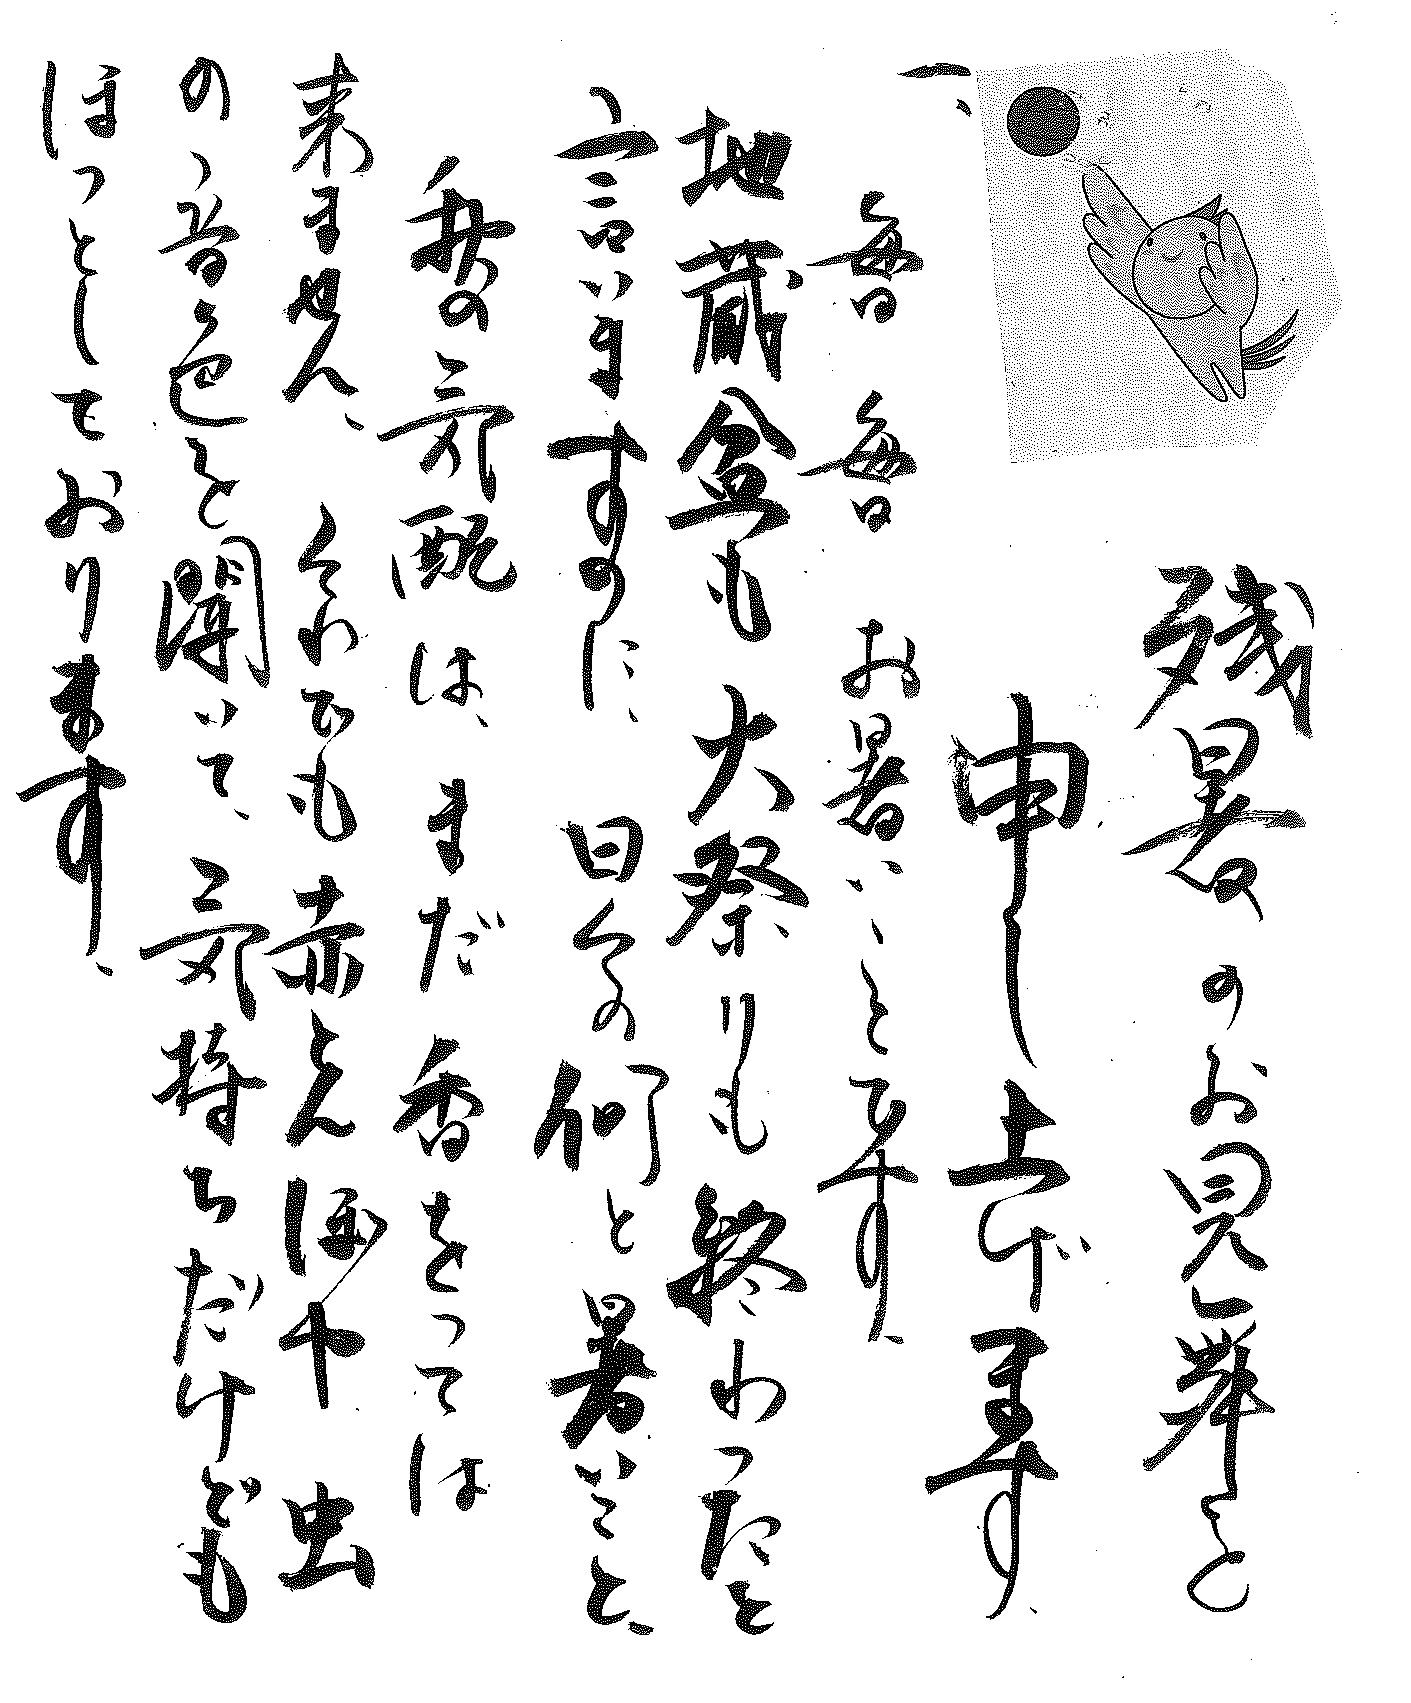 残暑のお見舞を
申し上げます
一、
毎毎お暑いことです。
地蔵盆も大祭りも終わったと
言いますのに、日々の何と暑いこと、
秋の気配は、まだ香をっては
来ません、くれでも赤とんぼや虫
の、音色を聞いて、気持ちだけども
ほっとしております、